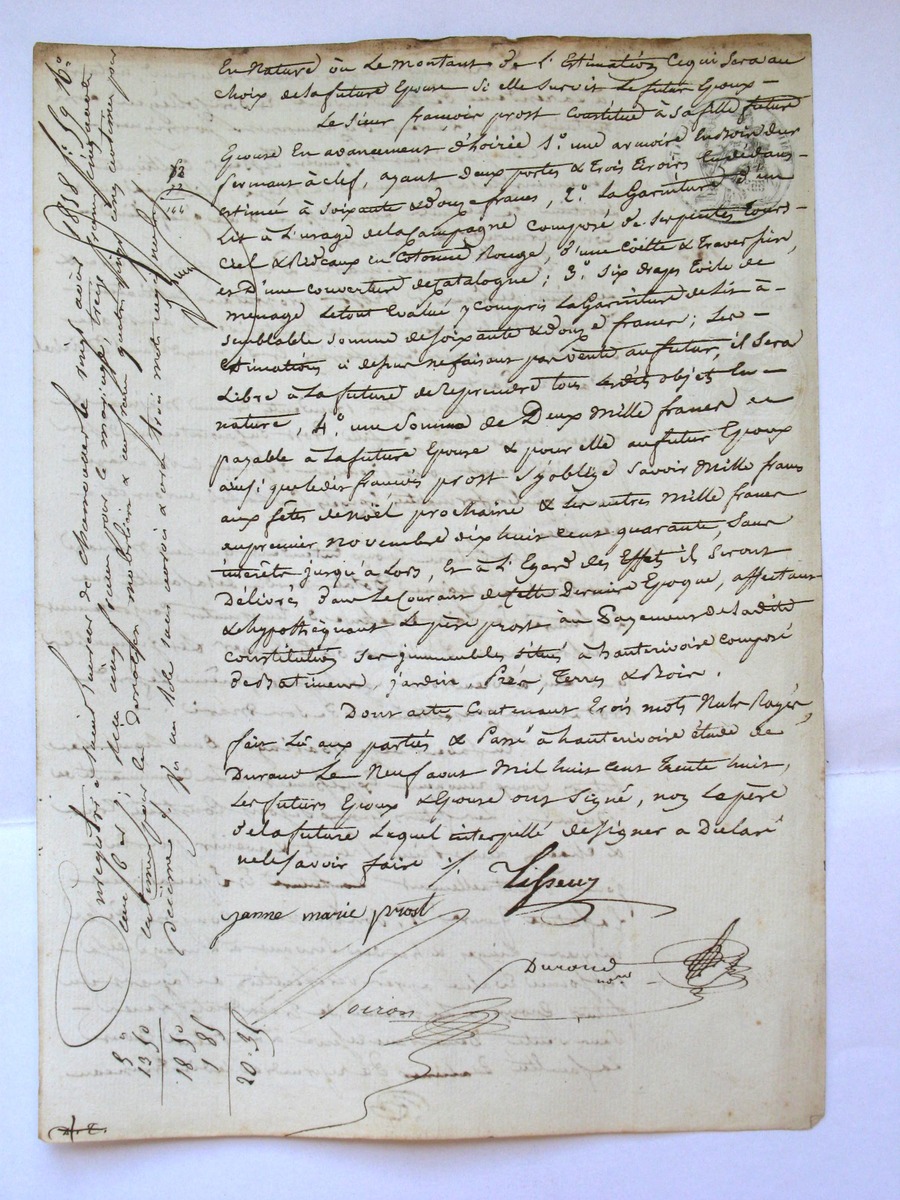 En Nature ou Le Montant de L'Estimation Cequi Sera au
choix de la future Epouse Si elle Survit Le futur Epoux -
Le Sieur francois prost Constitue à Sa fille future
Epouse En avancement d'hoirie 1.° une armoire En bois dur
fermant à clef, ayant deux portes & trois tiroirs En dedans -
estimée à Soixante & douze francs, 2.° La Garniture d'un
Lit à L'usage de la Campagne Composé de Serpentes tour de -
Ciel & Rideaux en Cotonne Rouge, d'une Coëtte & Traversier,
et D'une Couverture de Catalogne; 3.° Six draps toile de
menage Letout Evalué y compris La Garniture de Lit à -
semblable Somme de Soixante & douze francs; Les -
Estimations ci dessus ne faisant pas vente au futur, il Sera
Libre à La future de Reprendre tous Lesdits objets En -
nature, 4.° une Somme de Deux Mille francs
payable à La future Epouse & pour elle au futur Epoux
ainsi que ledit francois prost S'y oblige Savoir Mille francs
aux fêtes de Noël prochaine & Les autres Mille francs
au premier Novembre dix huit Cent quarante, Sans
interêts jusqu'à Lors, Et à L'Egard des Effets il Seront
Délivrés dans Le Courant de Cette Dernière Epoque, affectant
& hypothéquant Le père prost au Payement de La dite
Constitution Ses immeubles Situés à hauterivoire Composé
de Batiments, jardin, Prés, Terres & Bois.
Dont acte, Contenant trois mots Nuls Rayés
fait Lû aux parties & Passé à hauterivoire étude de
Durand Le Neuf août Mil huit Cent Trente huit,
Les futurs Epoux & Epouse ont Signé, non Le père
de la future Lequel interpellé de Signer a Déclaré
ne le Savoir faire ./.
janne marie prost
Durand
no.re
Enregistré à Saint Laurent de chamousset le vingt août 1838 f.° 59 R.°
pour le mariage, treize francs cinquante
centimes pour la donation mobilière & un franc quatre vingt cinq centimes pour
décime
72
72
144
5 "
13 50
18 50
1 85
20.35